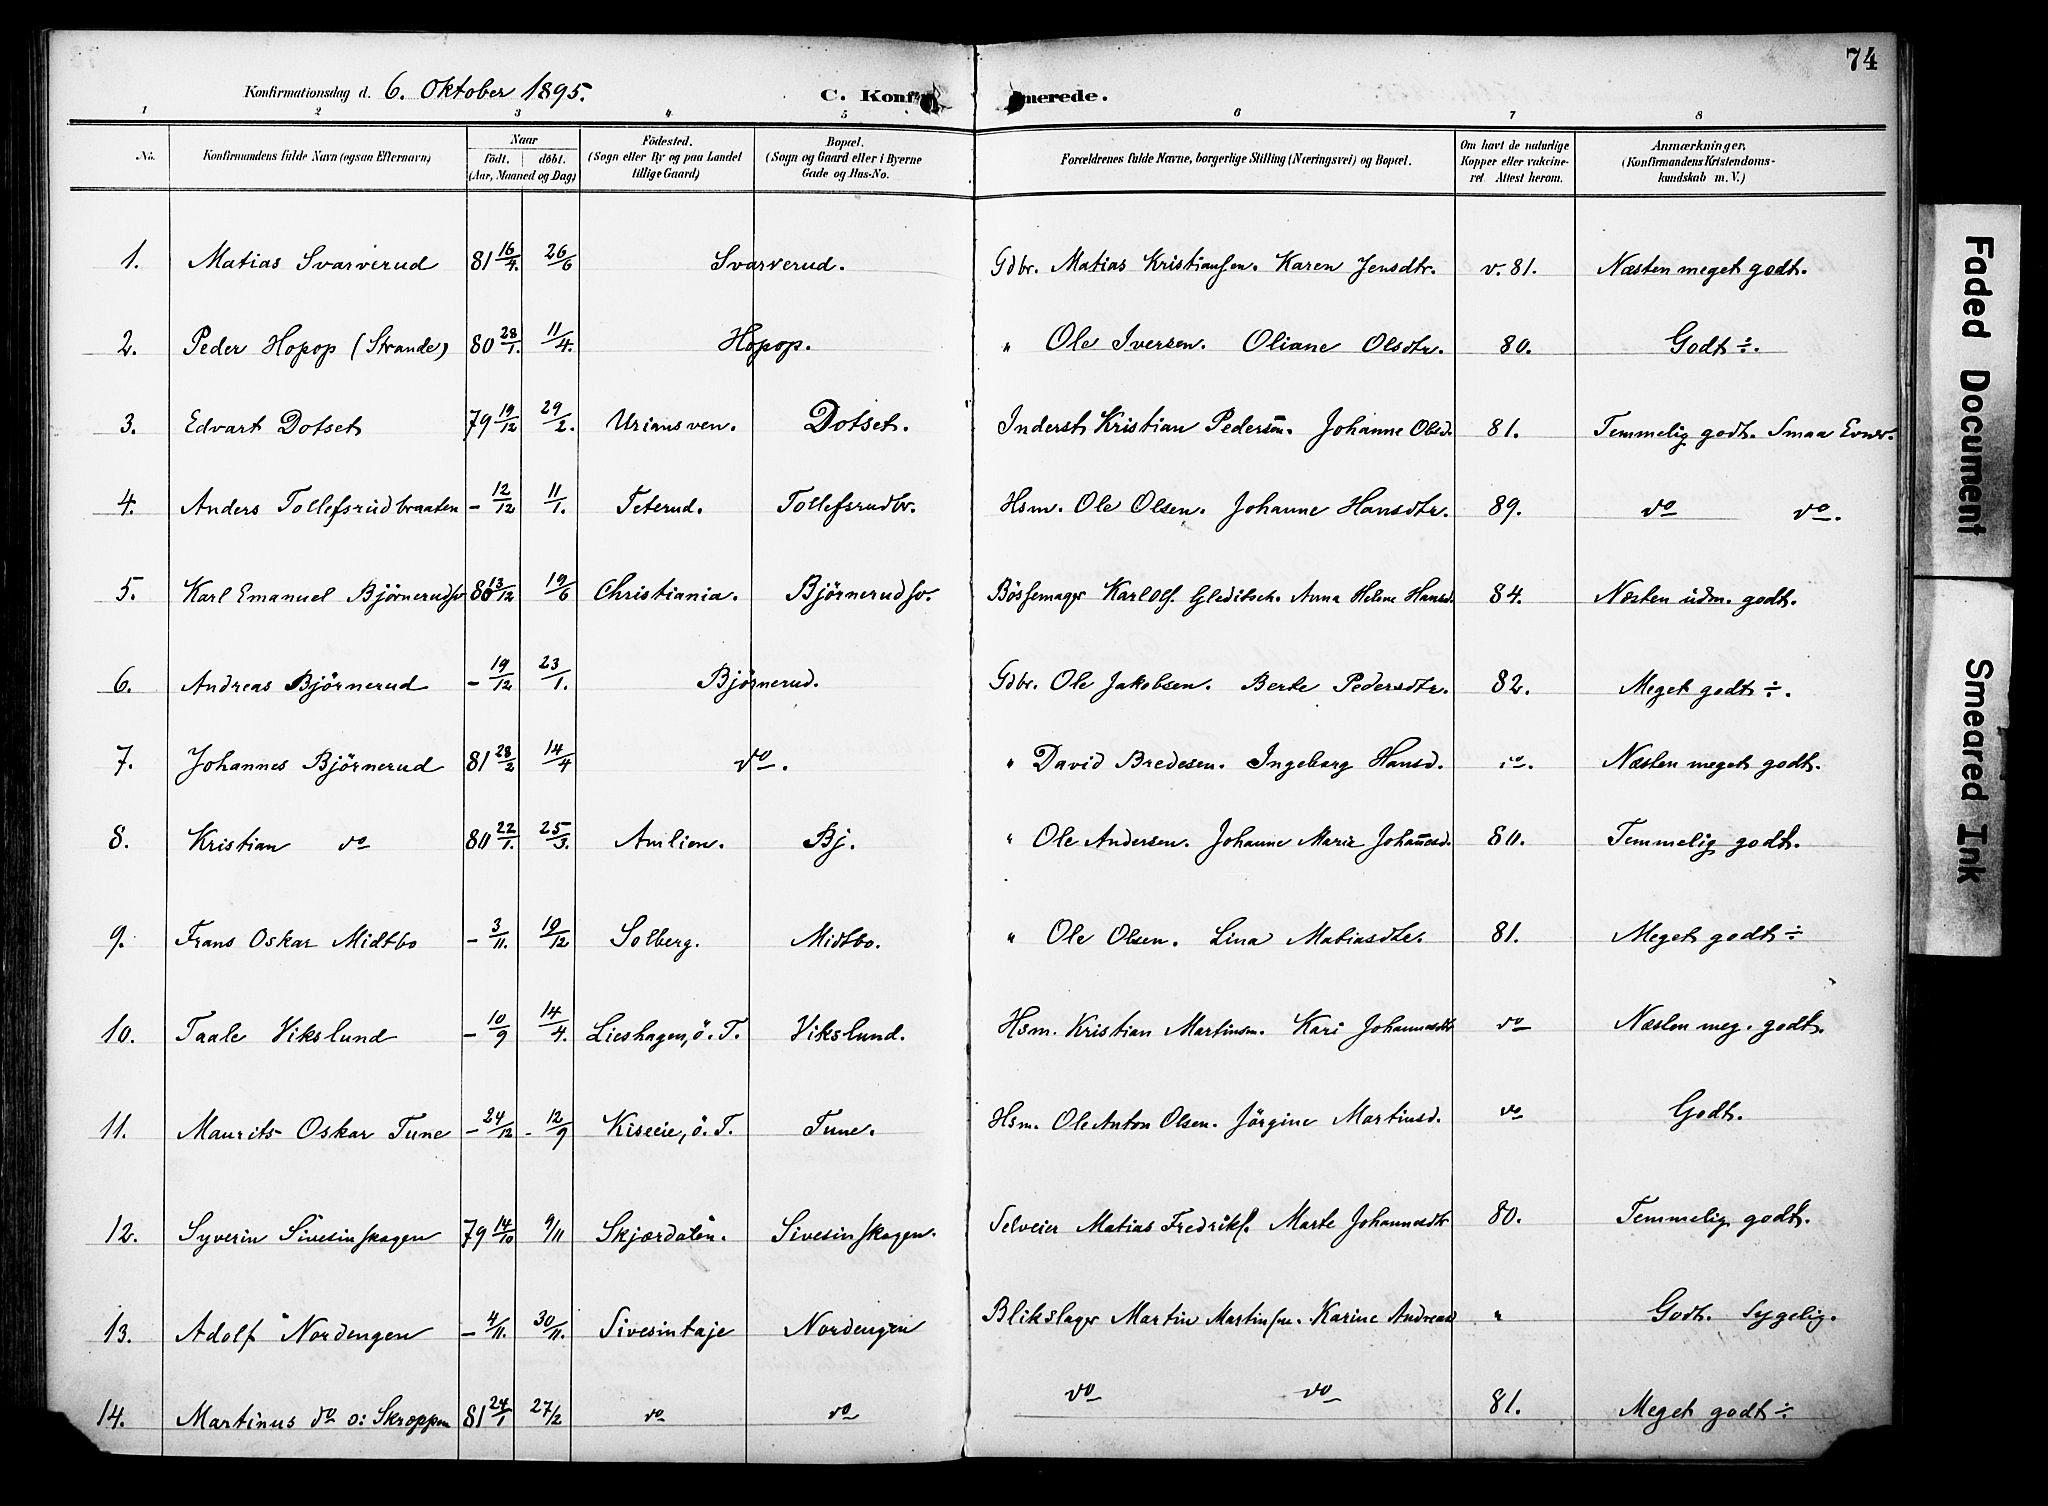 74
Konfirmationsdag d. 6. Oktober 1895. C. Konfirmerede.
1 2 3 4 5 6 7 8
No. Konfirmandens fulde Navn (ogsaa Efternavn) Naar født. døbt. (Aar, Maaned og Dag) Födested. (Sogn eller By og paa Landet tillige Gaard) Bopæl. (Sogn og Gaard eller i Byerne Gade og Hus-No. Forældrenes fulde Navne, borgerlige Stilling (Næringsvei) og Bopæl. Om havt de naturlige Kopper eller vakcineret Attest herom. Anmærkninger. (Konfirmandens Kristendomskundskab m. V.)
1. Matias Svarverud 81 16/4. 26/6 Svarverud. Gdbr. Matias Kristiansen. Karen Jensdtr. v. 81. Næsten meget godt.
2. Peder Hopop (Strande) 80 28/1. 11/4. Hopop. " Ole Iversen. Oliane Olsdtr. 80. Godt ÷.
3. Edvart Dotset 79 19/12 29/2. Uriansven. Dotset. Inderst Kristian Pedersen. Johanne Olsd. 81. Temmelig godt. Smaa Evner.
4. Anders Tollefsrudbraaten - 12/12 11/1. Teterud. Tollefsrudbr. Hsm. Ole Olsen. Johanne Hansdtr. 89. do do.
5. Karl Emanuel Björnerud 80 13/12 19/6 Christiania. Björnerud Bössemager Karl Olf. Gleditsch. Anna Helene Hansd. 84. Næsten udm. godt.
6. Andreas Björnerud - 19/12 23/1. Björnerud. Gdbr. Ole Jakobsen. Berte Pedersdtr. 82. Meget godt ÷.
7. Johannes Björnerud 81 28/2 14/4 do. " David Bredesen. Ingeborg Hansd. do. Næsten meget godt.
8. Kristian do 80 22/1. 25/3. Amlien. Bj. " Ole Andersen. Johanne Marie Johannesd. 80. Temmelig godt.
9. Frans Oskar Midtbo - 3/11. 19/12 Solberg. Midtbo. " Ole Olsen. Lina Matiasdtr. 81. Meget godt ÷
10. Taale Vikslund - 10/9 14/4. Lieshagen, ö. T. Vikslund. Hsm. Kristian Martinsen. Kari Johannesdtr do Næsten meg. godt.
11. Maurits Oskar Tune - 24/12 - 12/9 Kiseeie, ö. T. Tune. Hsm. Ole Anton Olsen. Jörgine Martinsd. do Godt.
12. Syverin Sivesinskagen 79 14/10 9/11 Skjærdalen. Sivesinskagen. Selveier Matias Fredriks. Marte Johannesdtr 80. Temmelig godt.
13. Adolf Nordengen - 4/11. 30/11. Sivesintaje Nordengen Blikslager Martin Martinsen. Karine Andreasd " Godt. Sygelig.
14. Martinus do o: Skroppen 81 24/1 27/2 do do do do 81. Meget godt ÷
Faded Document
Smeared Ink